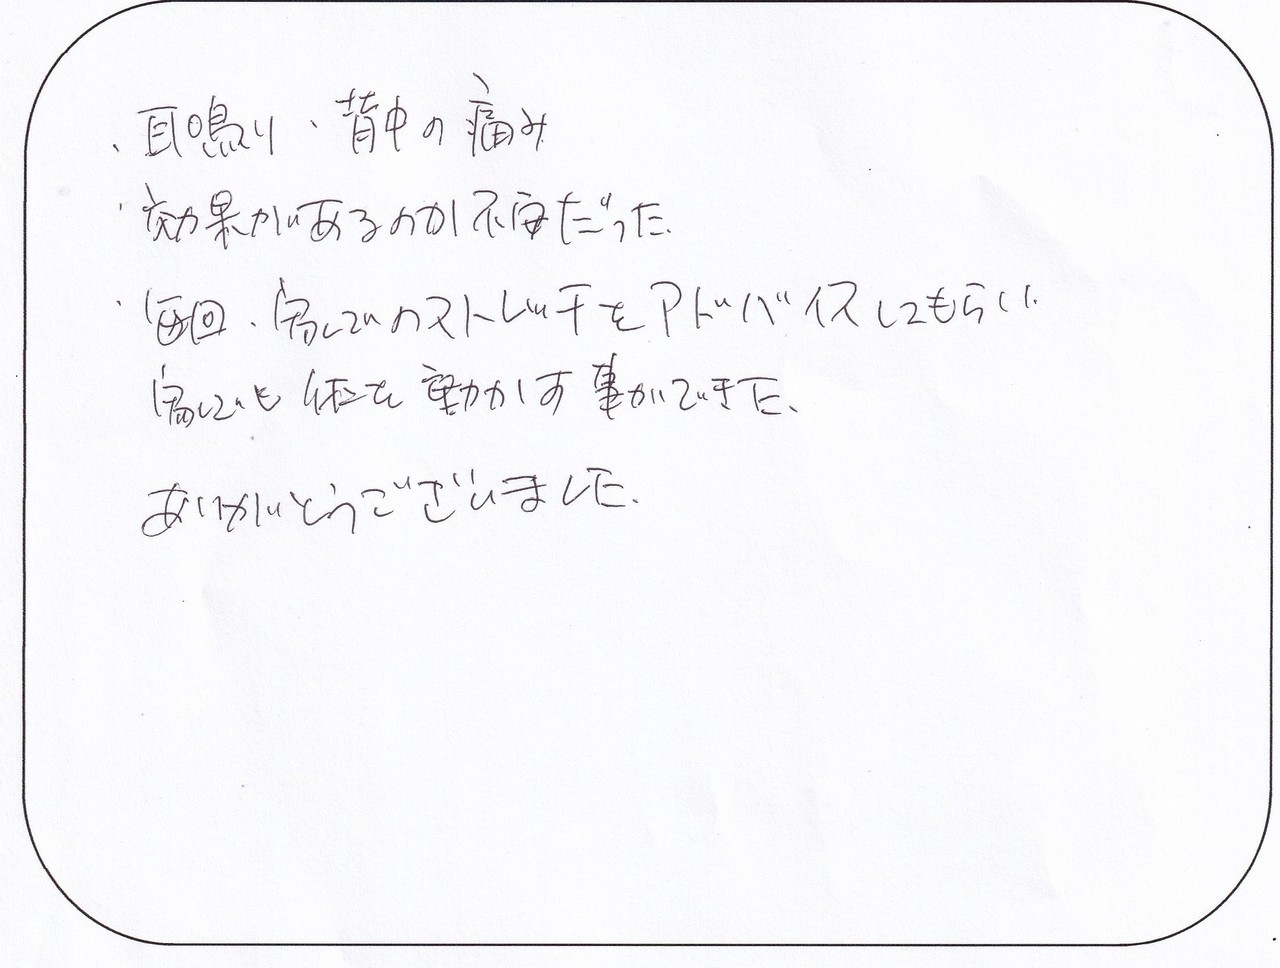 ・耳鳴り、背中の痛み
・効果があるのか不安だった。
・毎回、家でのストレッチをアドバイスしてもらい
家でも体を動かす事ができた。
ありがとうございました。